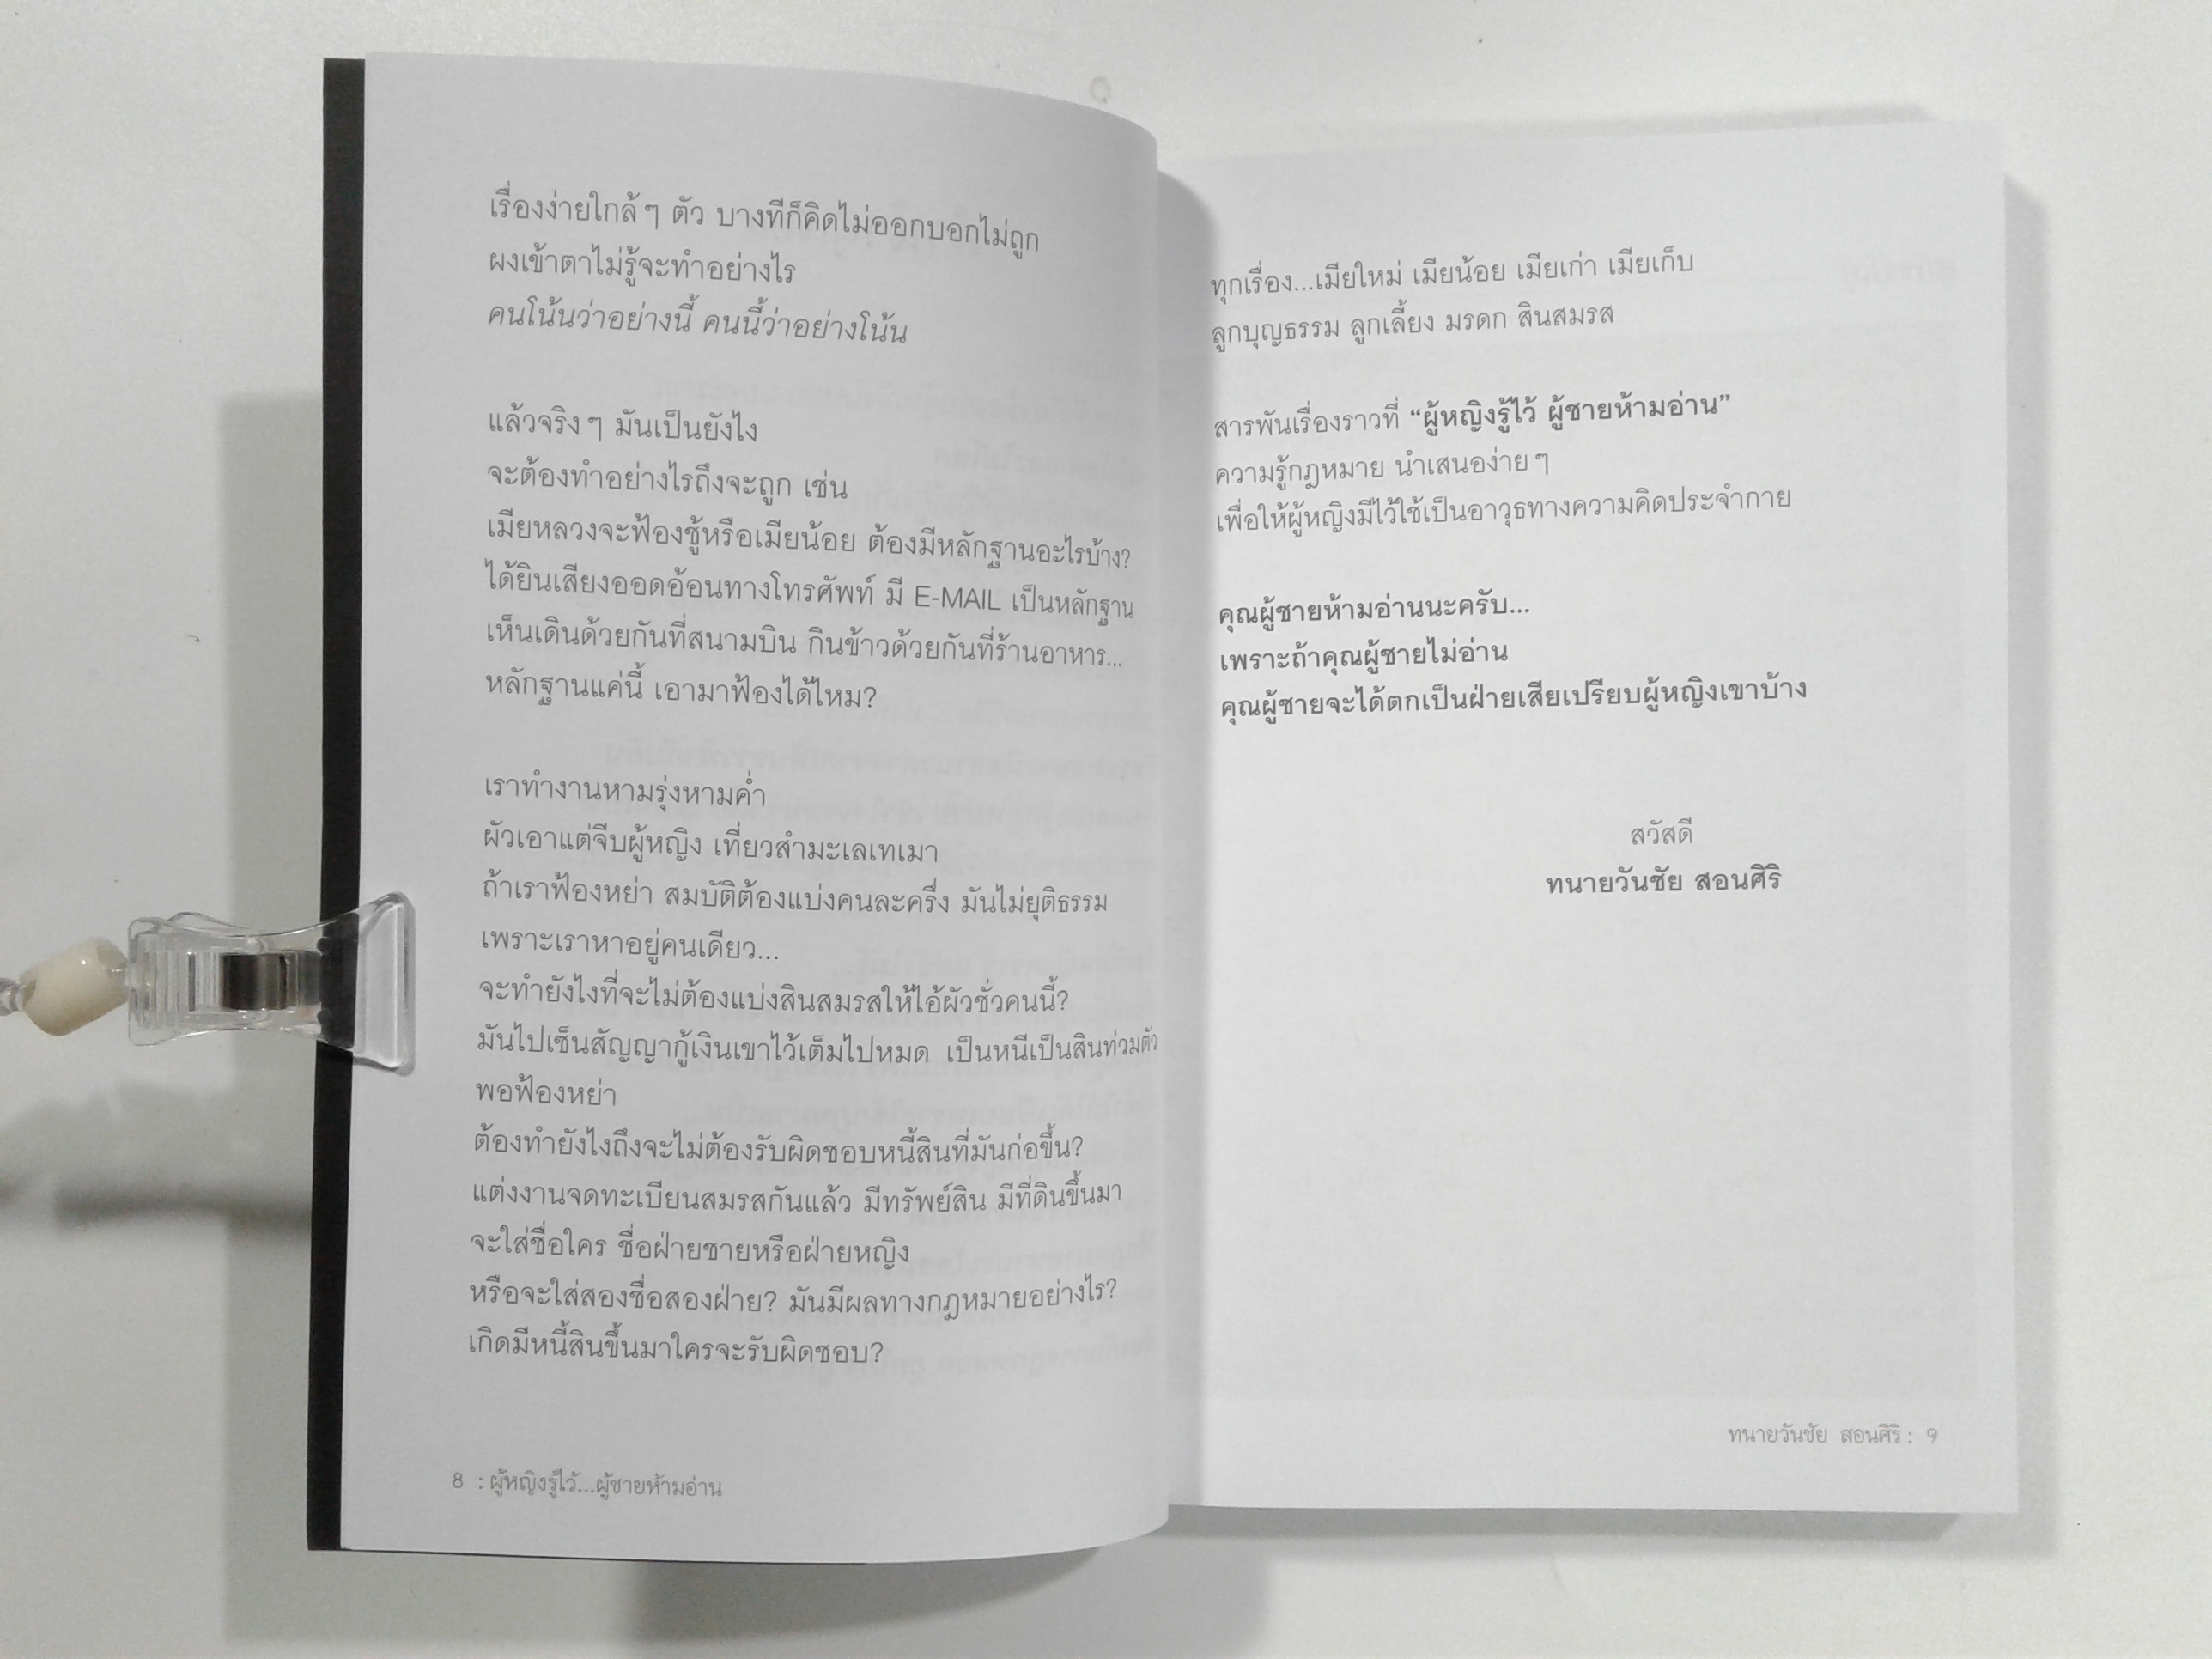 เรื่องง่ายใกล้ๆ ตัว บางทีก็คิดไม่ออกบอกไม่ถูก
ผงเข้าตาไม่รู้จะทำอย่างไร
คนโน้นว่าอย่างนี้ คนนี้ว่าอย่างโน้น
แล้วจริงๆ มันเป็นยังไง
จะต้องทำอย่างไรถึงจะถูก เช่น
เมียหลวงจะฟ้องชู้หรือเมียน้อย ต้องมีหลักฐานอะไรบ้าง?
ได้ยินเสียงออดอ้อนทางโทรศัพท์ มี E-MAIL เป็นหลักฐาน
เห็นเดินด้วยกันที่สนามบิน กินข้าวด้วยกันที่ร้านอาหาร...
หลักฐานแค่นี้ เอามาฟ้องได้ไหม?
เราทำงานหามรุ่งหามค่ำ
ผัวเอาแต่จีบผู้หญิง เที่ยวสำมะเลเทเมา
ถ้าเราฟ้องหย่า สมบัติต้องแบ่งคนละครึ่ง มันไม่ยุติธรรม
เพราะเราหาอยู่คนเดียว...
จะทำยังไงที่จะไม่ต้องแบ่งสินสมรสให้ไอ้ผัวชั่วคนนี้?
มันไปเซ็นสัญญากู้เงินเขาไว้เต็มไปหมด เป็นหนี้เป็นสินท่วมตัว
พอฟ้องหย่า
ต้องทำยังไงถึงจะไม่ต้องรับผิดชอบหนี้สินที่มันก่อขึ้น?
แต่งงานจดทะเบียนสมรสกันแล้ว มีทรัพย์สิน มีที่ดินขึ้นมา
จะใส่ชื่อใคร ชื่อฝ่ายชายหรือฝ่ายหญิง
หรือจะใส่สองชื่อสองฝ่าย? มันมีผลทางกฎหมายอย่างไร?
เกิดมีหนี้สินขึ้นมาใครจะรับผิดชอบ?
8 : ผู้หญิงรู้ไว้...ผู้ชายห้ามอ่าน
ทุกเรื่อง...เมียใหม่ เมียน้อย เมียเก่า เมียเก็บ
ลูกบุญธรรม ลูกเลี้ยง มรดก สินสมรส
สารพันเรื่องราวที่ “ผู้หญิงรู้ไว้ ผู้ชายห้ามอ่าน”
ความรู้กฎหมาย นำเสนอง่ายๆ
เพื่อให้ผู้หญิงมีไว้ใช้เป็นอาวุธทางความคิดประจำกาย
คุณผู้ชายห้ามอ่านนะครับ...
เพราะถ้าคุณผู้ชายไม่อ่าน
คุณผู้ชายจะได้ตกเป็นฝ่ายเสียเปรียบผู้หญิงเขาบ้าง
สวัสดี
ทนายวันชัย สอนศิริ
ทนายวันชัย สอนศิริ : 9